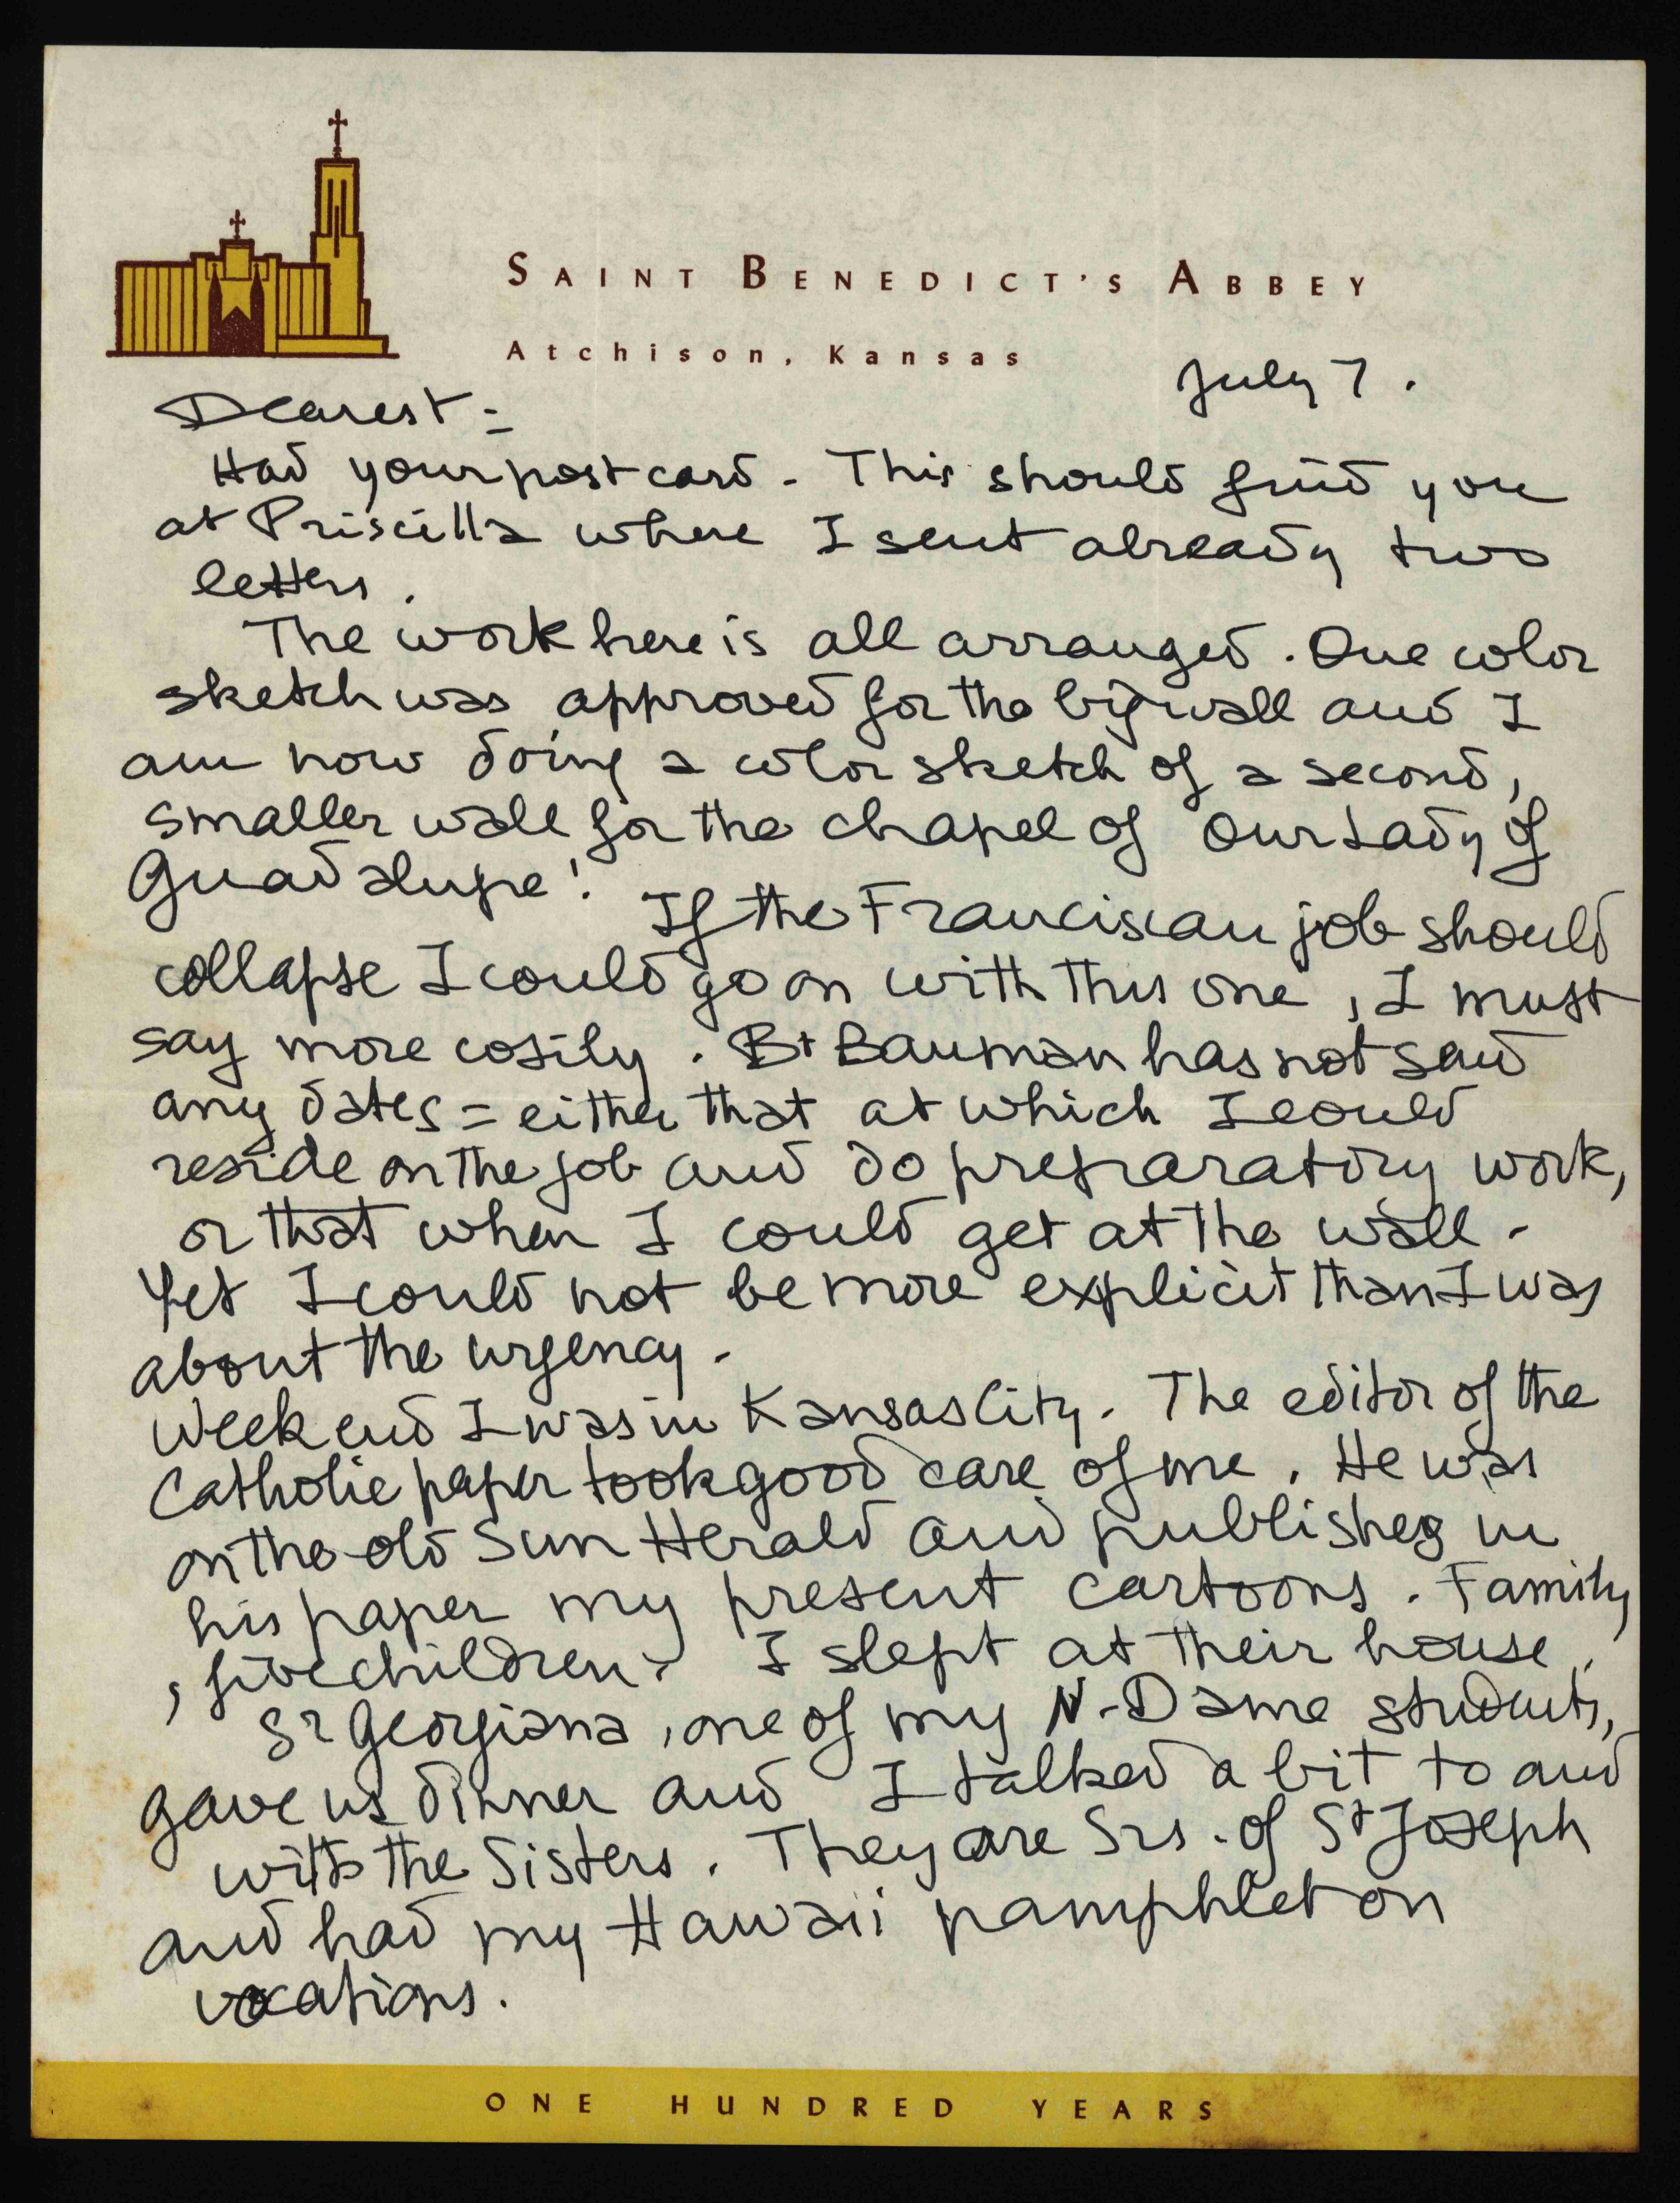 SAINT BENEDICT'S ABBEY
Atchison, Kansas
July 7.
Dearest =
Had your postcard - This should find you
at Priscilla where I sent already two
letters.
The work here is all arranged. One color
sketch was approved for the big wall and I
am now doing a color sketch of a second,
smaller wall for the chapel of Our Lady of
Guadalupe! If the Franciscan job should
collapse I could go on with this one, I must
say more cosily. Bt Bauman has not said
any dates = either that at which I could
reside on the job and do preparatory work,
or that when I could get at the wall -
Yet I could not be more explicit than I was
about the urgency -
Week end I was in Kansas City. The editor of the
Catholic paper took good care of me. He was
on the old Sun Herald and publishes in
his paper my present cartoons. Family
, five children. I slept at their house.
Sr Georgiana, one of my N-Dame students,
gave us dinner and I talked a bit to and
with the Sisters. They are Srs. of St Joseph
and had my Hawaii pamphlet on
vocations.
ONE HUNDRED YEARS